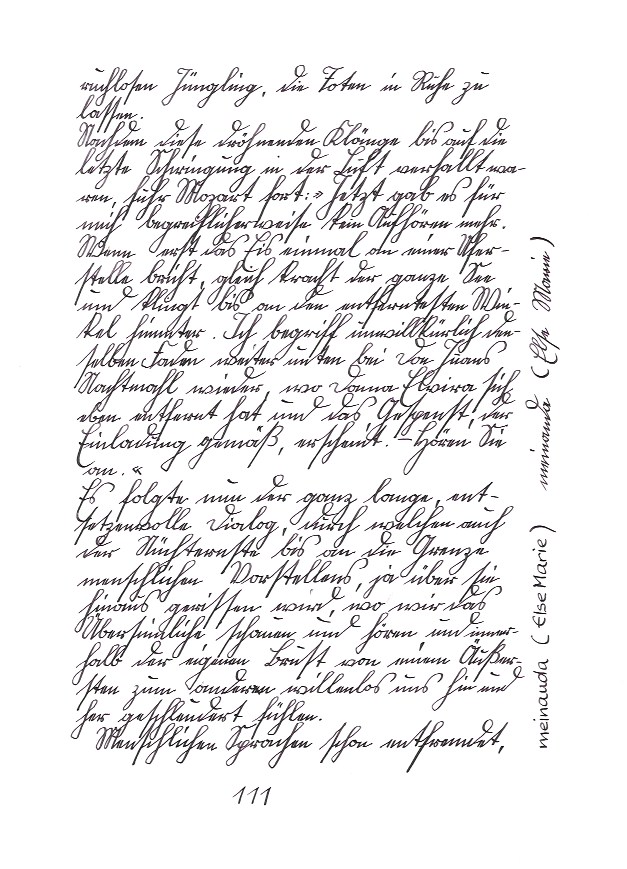 ruchlosen Jüngling, die Toten in Ruhe zu
lassen.
Nachdem diese dröhnenden Klänge bis auf die
letzte Schwingung in der Luft verhallt wa-
ren, fuhr Mozart fort: » Jetzt gab es für
mich begreiflicherweise kein Aufhören mehr.
Wenn erst das Eis einmal an einer Ufer-
stelle bricht, gleich kracht der ganze See
und klingt bis an den entferntesten Win-
kel hinunter. Ich begriff unwillkürlich den-
selben Faden weiter unten bei Don Juans
Nachtmahl wieder, wo Donna Elvira sich
eben entfernt hat und das Gespenst, der
Einladung gemäß, erscheint. – Hören Sie
an. «
Es folgte nun der ganz lange, ent-
setzenvolle Dialog, durch welchen auch
der Nüchternste bis an die Grenze
menschlichen Vorstellens, ja über sie
hinaus gerissen wird, wo wir das
Übersinnliche schauen und hören und inner-
halb der eigenen Brust von einem Äußer-
sten zum anderen willenlos uns hin und
her geschleudert fühlen.
Menschlichen Sprachen schon entfremdet,
111
meinauda (Else Marie)
meinauda (Else Marie)